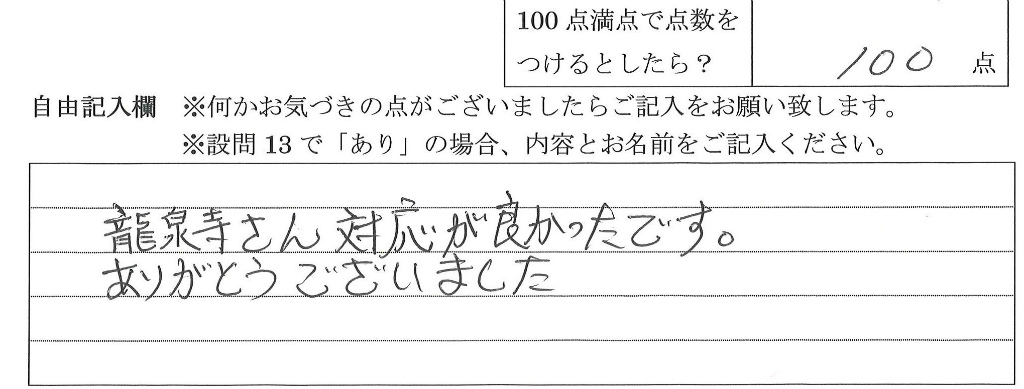 100 点満点で点数を
つけるとしたら？ 100 点
自由記入欄 ※何かお気づきの点がございましたらご記入をお願い致します。
※設問 13 で「あり」の場合、内容とお名前をご記入ください。
龍泉寺さん 対応が良かったです。
ありがとうございました